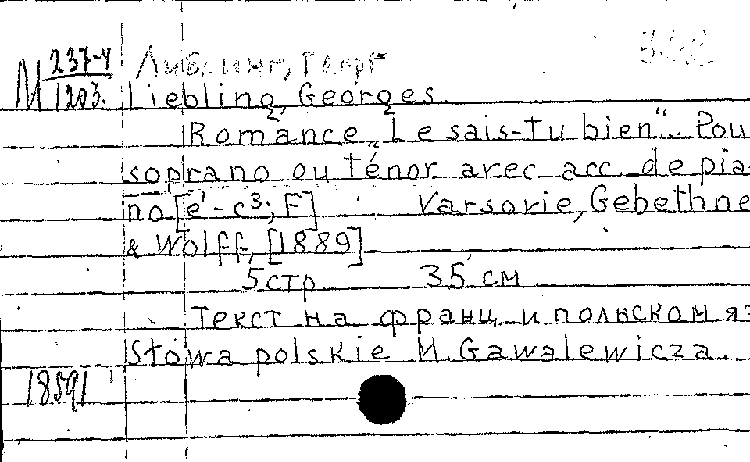 М 237-4/1203. Либлинг, Георг
Liebling, Georges.
Romance „Le sais-tu bien". Pou
soprano ou ténor avec acc. de pia-
no [e¹-c³; F] Varsovie, Gebethne
& Wolff, [1889]
5 стр 35 см
Текст на франц. и польском яз
Słowa polskie M. Gawalewicza.
18591